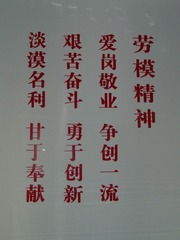 劳模精神
爱岗敬业 争创一流
艰苦奋斗 勇于创新
淡漠名利 甘于奉献